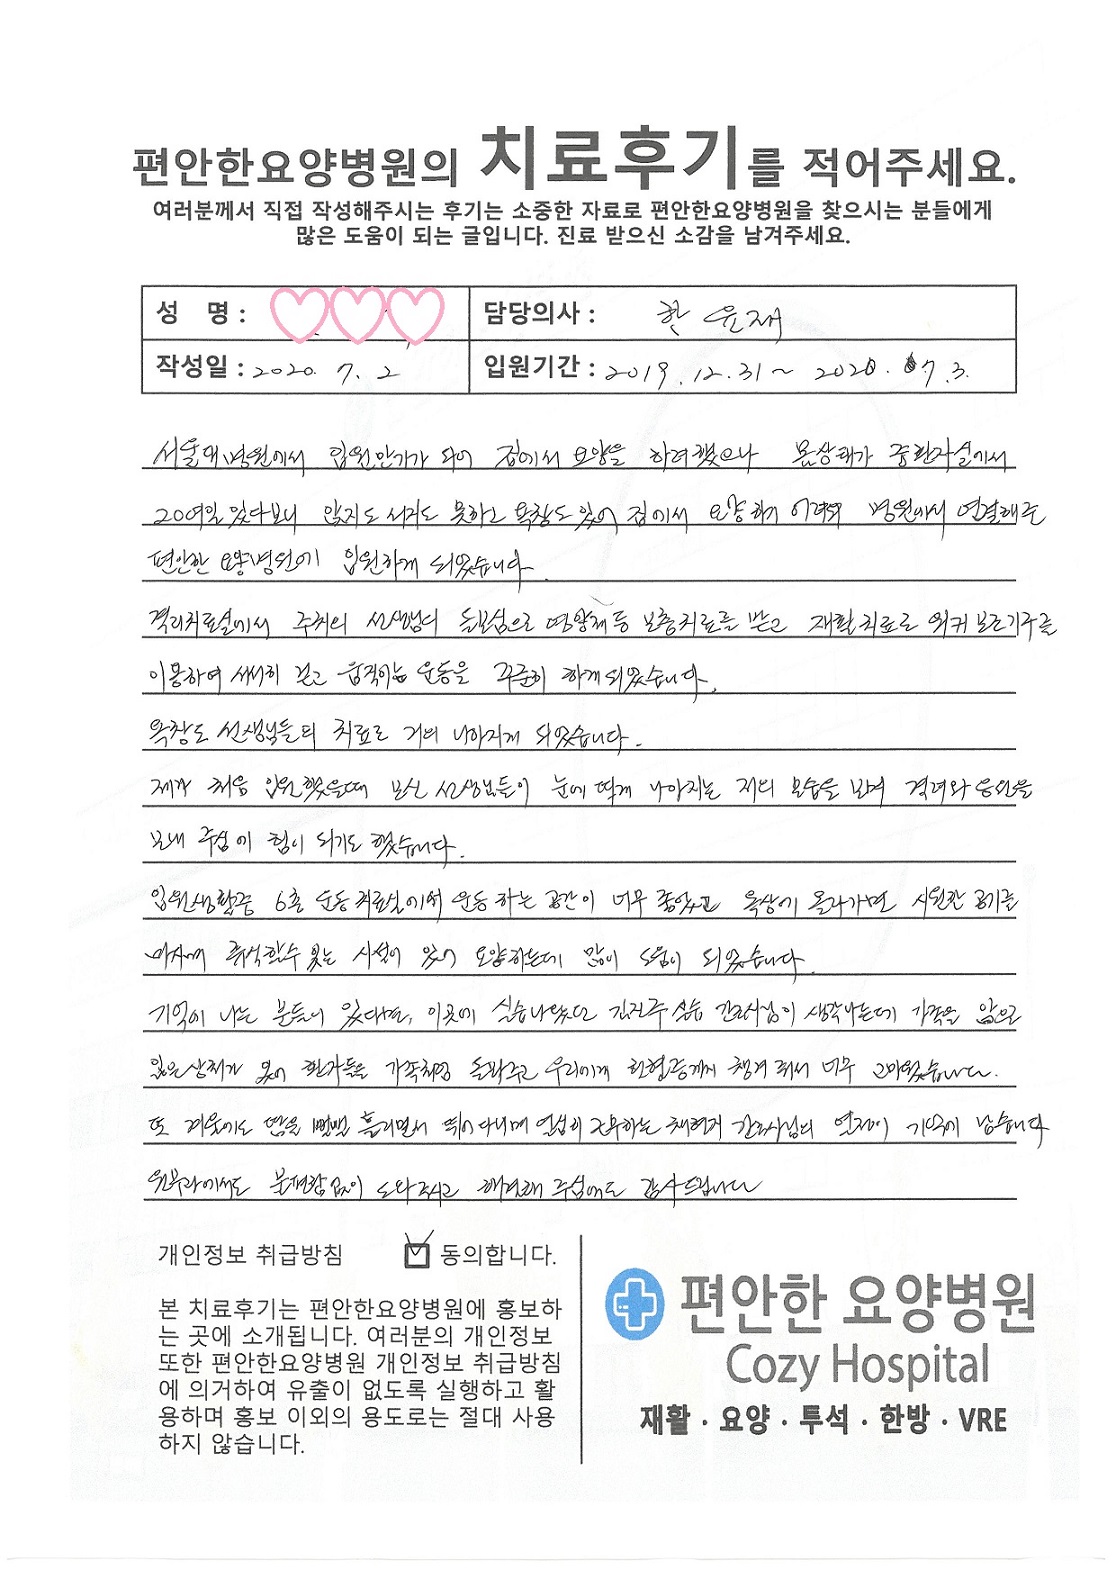 편안한요양병원의 치료후기를 적어주세요.
여러분께서 직접 작성해주시는 후기는 소중한 자료로 편안한요양병원을 찾으시는 분들에게
많은 도움이 되는 글입니다. 진료 받으신 소감을 남겨주세요.
성 명 : 담당의사 : 한윤재
작성일 : 2020. 7. 2 입원기간 : 2019.12.31 ~ 2020. 7.3.
서울대병원에서 입원만기가 되어 집에서 요양을 하려했으나 몸상태가 중환자실에서
20여일 있다보니 앉지도 서지도 못하고 욕창도 있어 집에서 요양하기 어려워 병원에서 연결해준
편안한 요양병원에 입원하게 되었습니다.
격리치료실에서 주치의 선생님의 돌보심으로 영양제등 보충치료를 받고 재활치료로 워커 보조기구를
이용하여 서서히 걷고 움직이는 운동을 꾸준히 하게되었습니다.
욕창도 선생님들의 치료로 거의 나아지게 되었습니다.
제가 처음 입원했을때 보신 선생님들이 눈에 띄게 나아지는 저의 모습을 보며 격려와 응원을
보내 주심에 힘이 되기도 했습니다.
입원생활중 6층 운동치료실에서 운동하는 공간이 너무 좋았고 옥상에 올라가면 시원한 공기를
마시며 휴식할수 있는 시설이 있어 요양하는데 많이 도움이 되었습니다.
기억에 나는 분들이 있다면, 이곳에 실습나왔던 김진주 실습 간호사님이 생각나는데 가족을 암으로
잃은 상처가 있어 환자들을 가족처럼 돌봐주고 우리에게 헌혈증까지 챙겨줘서 너무 고마웠습니다.
또 겨울에도 땀을 뻘뻘 흘리면서 뛰어다니며 열심히 근무하는 간호사님의 열정이 기억에 남습니다
원무과에서도 불편함없이 도와주시고 해결해 주심에도 감사드립니다
개인정보 취급방침 동의합니다.
본 치료후기는 편안한요양병원에 홍보하
는 곳에 소개됩니다. 여러분의 개인정보
또한 편안한요양병원 개인정보 취급방침
에 의거하여 유출이 없도록 실행하고 활
용하며 홍보 이외의 용도로는 절대 사용
하지 않습니다.
편안한 요양병원
Cozy Hospital
재활 · 요양 · 투석 · 한방 · VRE